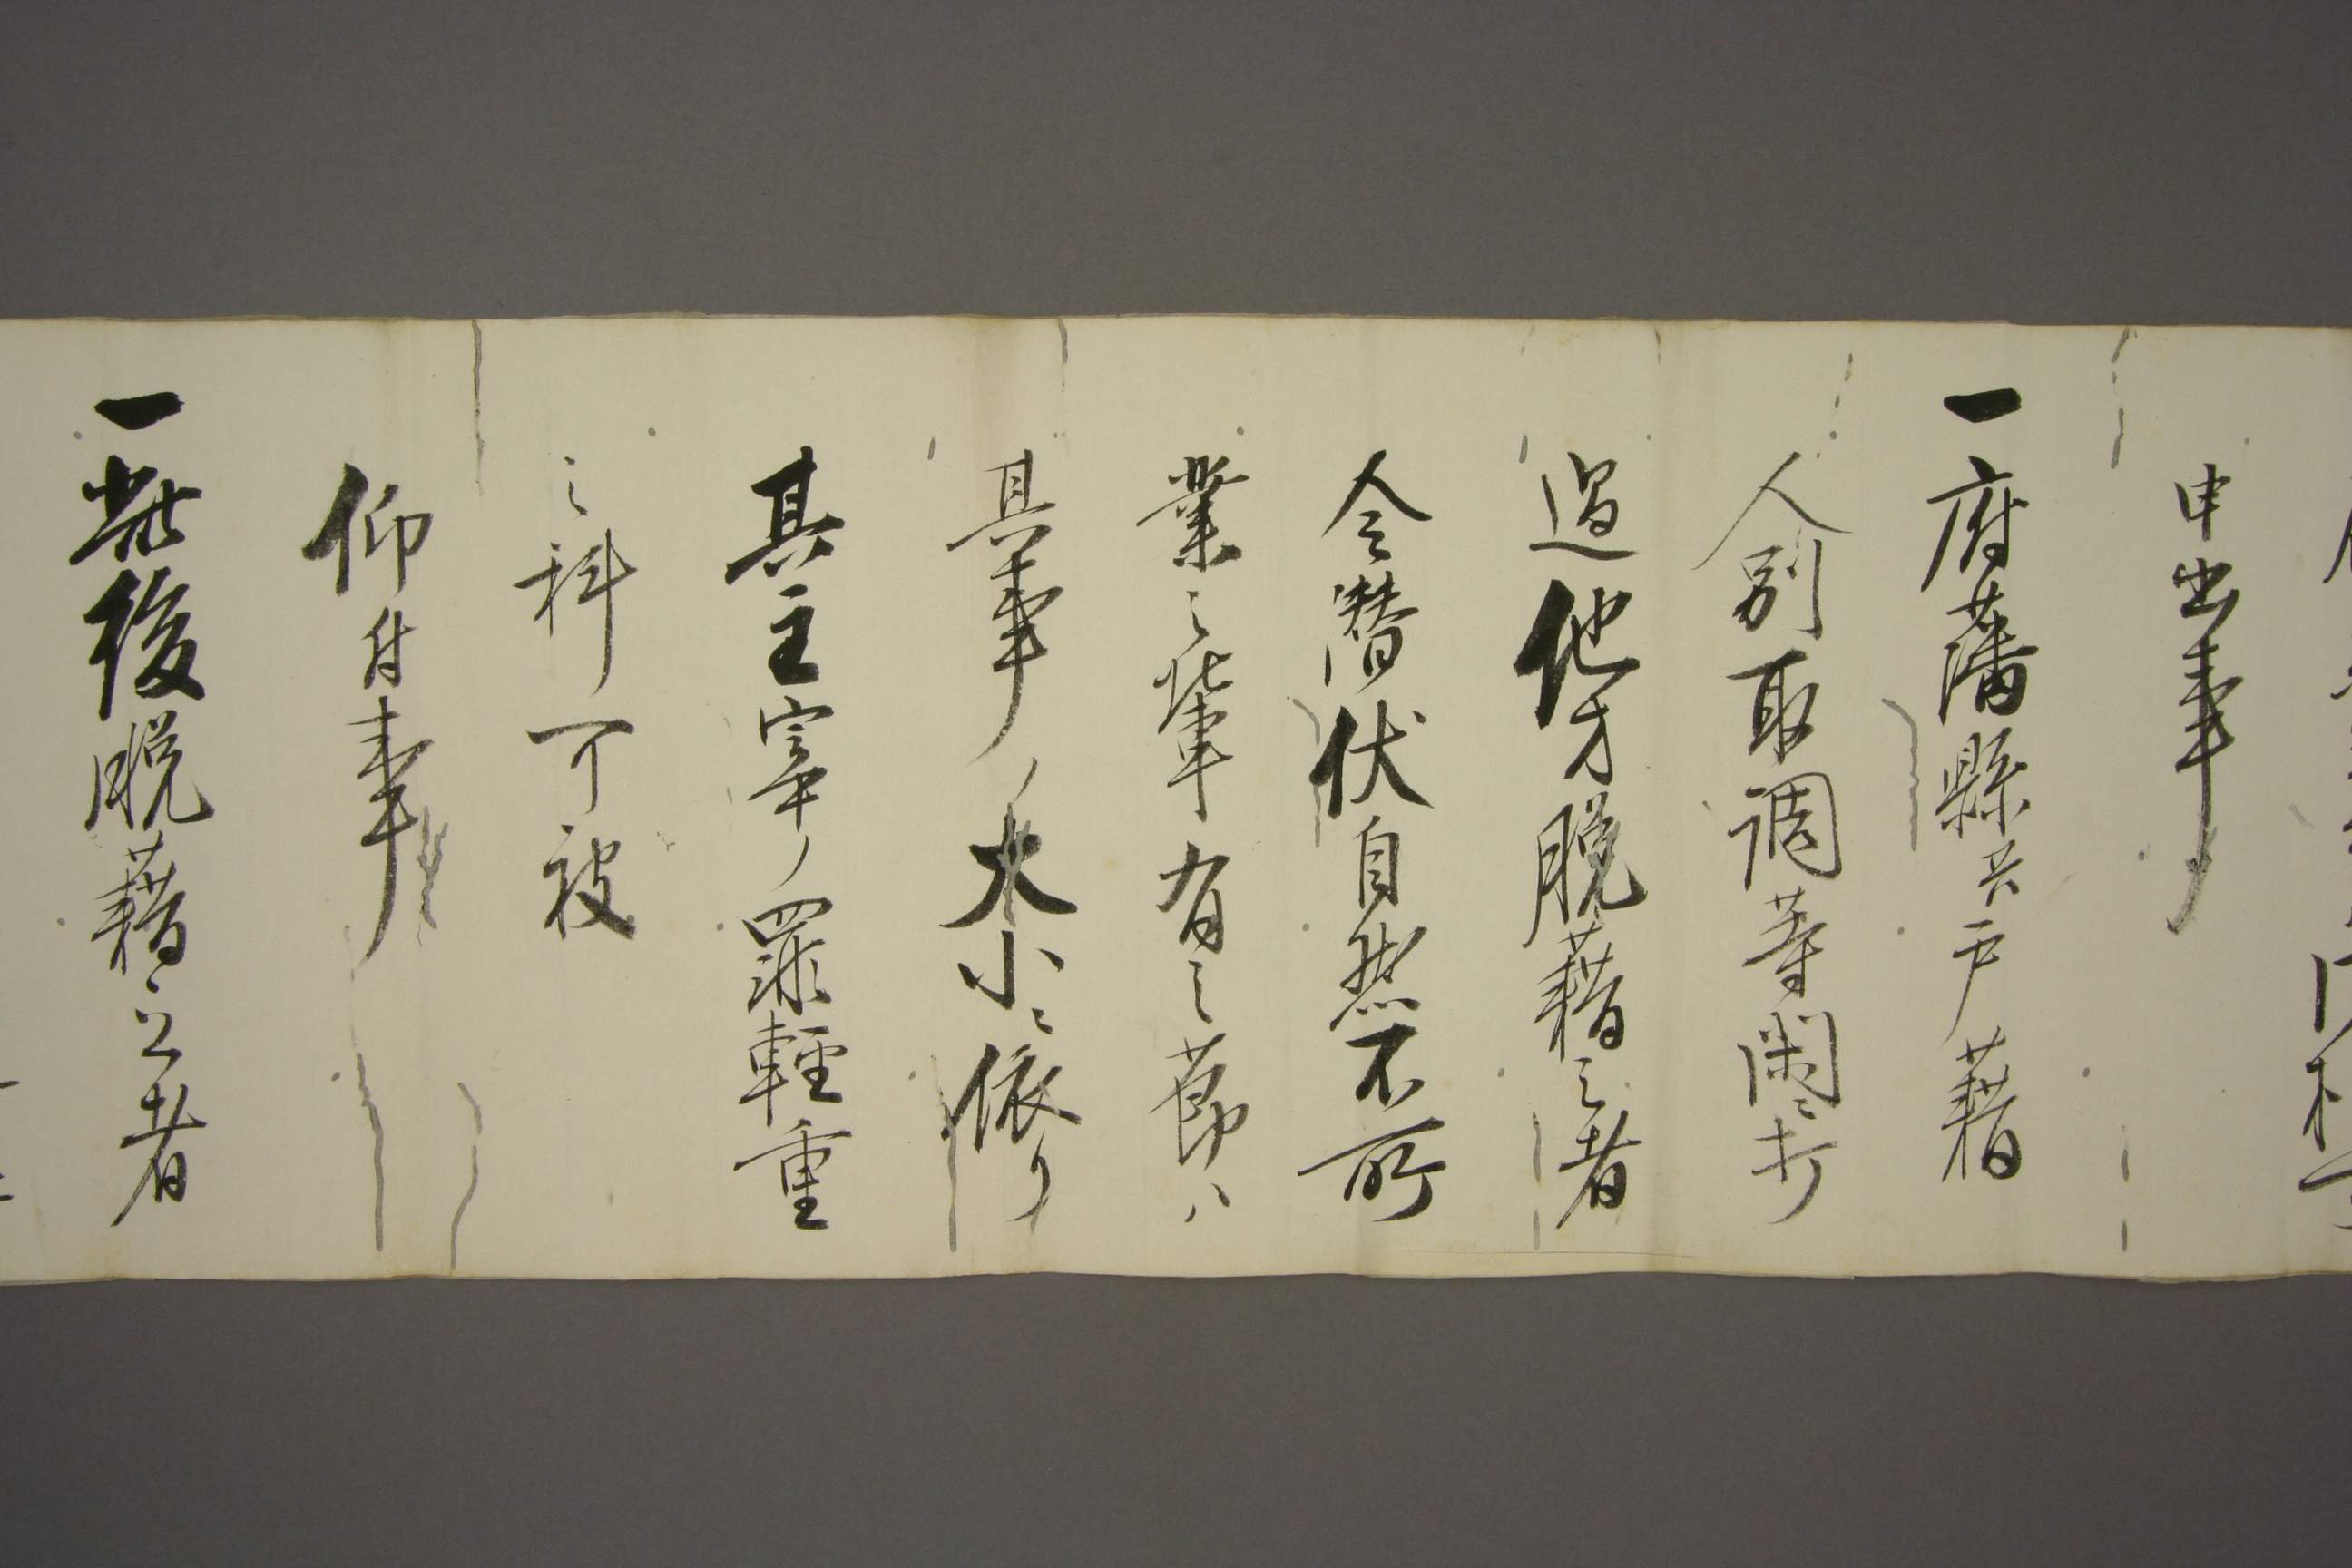 申出事
一府藩縣共戸籍
人別取調等閑ニ打
過他方脱藉之者
令潜伏自然不所
業之輩有之節ハ
其事ノ大小ニ依リ
其主宰ノ罪輕重
之科可被
仰付事
一此後脱藉之者